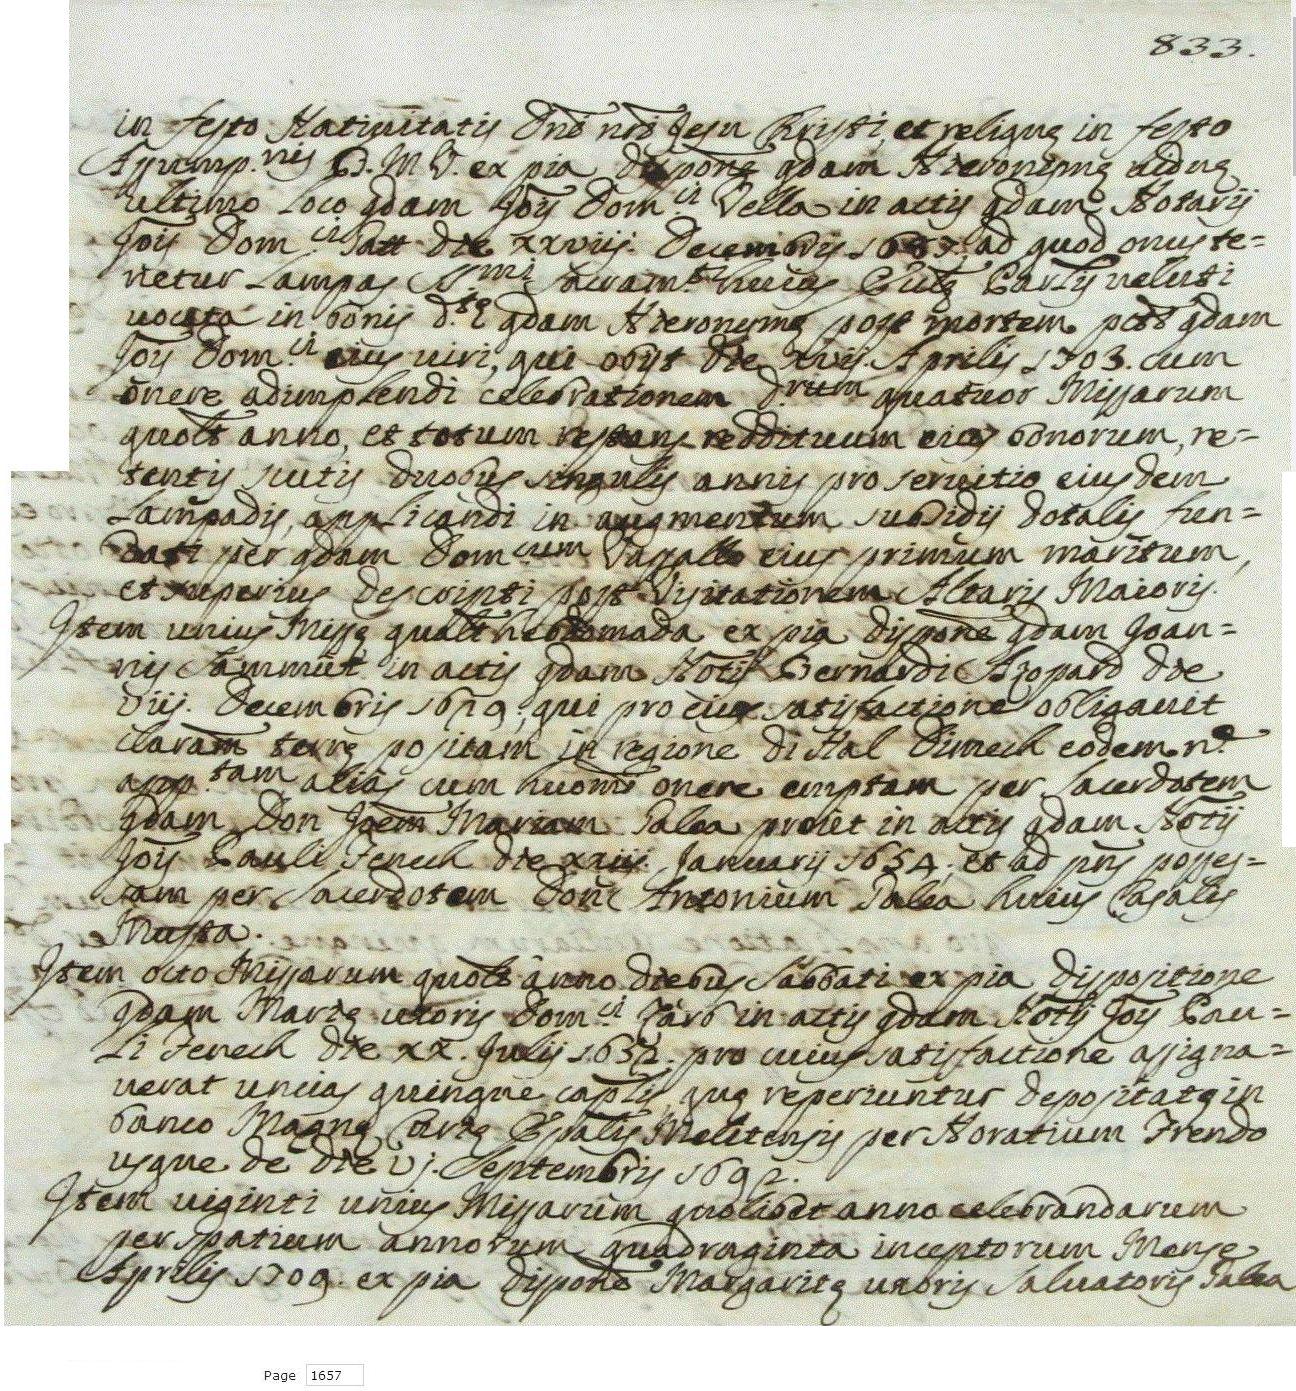 833.
in festo Natiuitatis Dnĩ nrĩ Jesu Christi, et reliquę in festo
Assump.nis B. M. V. ex pia dispõne qdam Hieronymę uiduę
ultimo loco qdam Jois Dom.ci Vella in actis qdam Notarij
Jois Dom.ci die xxviij. Decembris ad quod onus te=
netur Lampas SSmi Sacram.ti huius Eccłę Parlis ueluti
uocata in bonis d.tę qdam Hieronymę post mortem pttĩ qdam
Jois Dom.ci eius uiri, qui obijt die xvij. Aprilis 1703. cum
onere adimplendi celebrationem d.rum quatuor Missarum
quolt anno, et totum restans reddituum eius bonorum, re=
tentis scutis duobus singulis annis pro seruitio eiusdem
Lampadis, applicandi in augmentum subsidij dotalis fun=
dati per qdam Dom.cum Vassallo eius primum maritum,
et superius descripti post Visitationem Altaris Maioris.
Item unius Missę qualt hebdomada ex pia dispone qdam Joan=
nis Sammut in actis qdam Notij Bernardi Azopard die
viij. Decembris 1629. qui pro eius satisfactione obligauit
clausam terrę positam in regione di Hal Dimech eodem n.e
app.tam aliàs cum huoni onere emptam per Sacerdotem
qdam Don Joem Mariam Palea prout in actis qdam Notij
Jois Pauli Fenech die xxiij. Januarij 1654. et ad pns posses=
sam per Sacerdotem Don Antonium Palea huius Casalis
Musta.
Item octo Missarum quolt anno diebus Sabbati ex pia dispositione
qdam Marię uxoris Dom.ci Zarb in actis qdam Notij Jois Pau=
li Fenech die xx. Julij 1652. pro cuius satisfactione assigna=
uerat uncias quinque caplis, quę reperiuntur depositatę in
banco Magnę Curię Epalis Melitensis per Horatium Frendo
usque de die vj. Septembris 1692.
Item uiginti unius Missarum quolibet anno celebrandarum
per spatium annorum quadraginta inceptorum Mense
Aprilis 1709. ex pia dispone Margaritę uxoris Saluatoris Palea
Page 1657